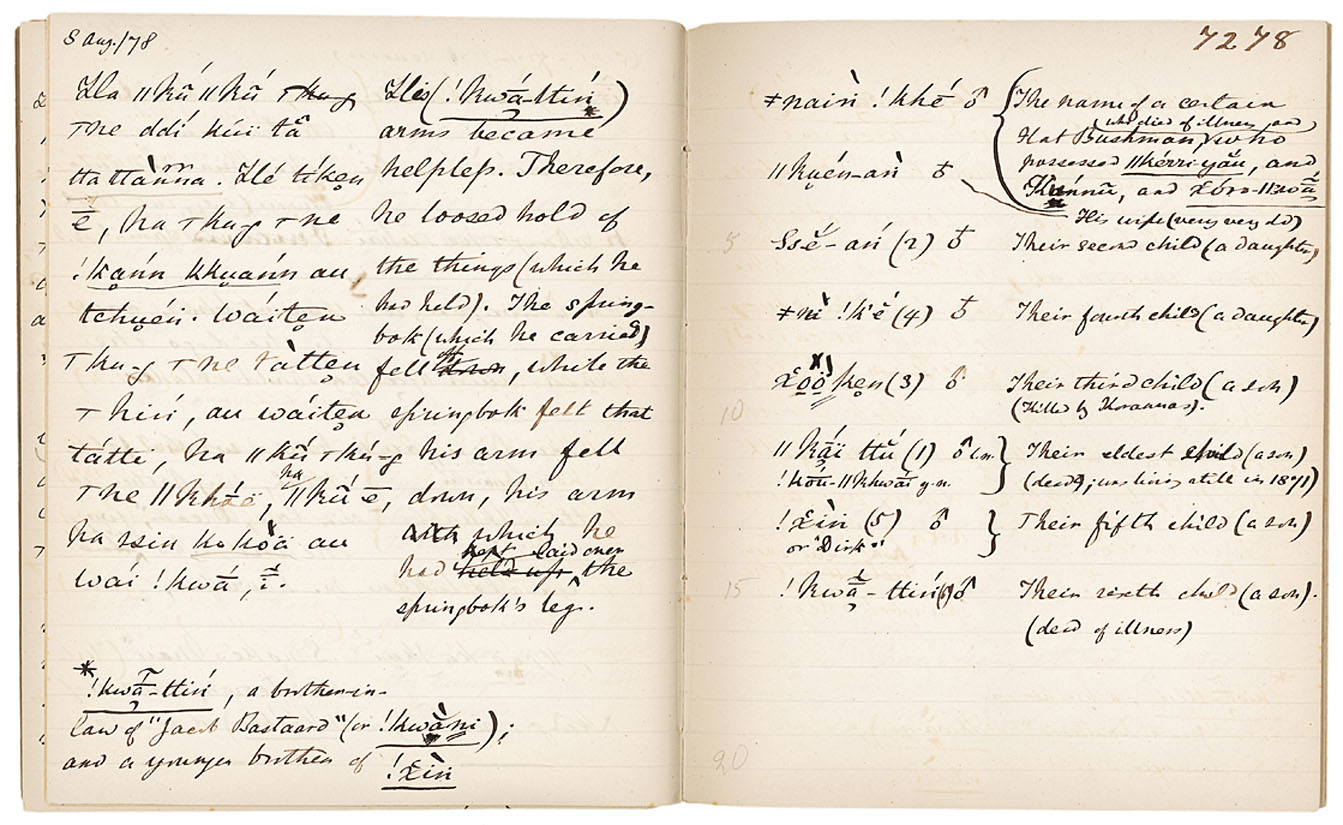 8 Aug./78
Ha ǁkū́ ǁkū́ ꞇkuɡ
ꞇne ddí kúï tā̆
tta ttànna. Hé tíken
ē, ha ꞇkuɡ ꞇne
!kann kkuánn au
tchuén. wáiten
ꞇku-ɡ ꞇne tàtten
ꞇhiń, au wáiten
tátti, ha ǁkū́ ꞇkú-ɡ
ꞇne ǁkhóë, ha ǁkū́ ē,
ha ssin kókòä au
wái !kwā́, ī.
His (!kwā́-ttiń *)
arms became
helpless. Therefore,
he loosed hold of
the things (which he
had held). The spring-
bok (which he carried)
fell off down, while the
springbok felt that
his arm fell
down, his arm
with which he
kept laid over
had held up, the
springbok's leg.
* !kwā́-ttiń, a brother-in-
law of "Jacob Bastaard" (or !kwàni);
and a younger brother of !x̃ìń
7278
≠nain !khé ♂
The name of a certain
(who died of illness, and
Flat Bushman, who
possessed ǁkérri-yaú, and
and
ǁkuén-an ♁
His wife (very very old)
5
Ssĕ́-ań (2) ♁
Their second child (a daughter)
≠nì !k'é (4) ♁
Their fourth child (a daughter)
ken (3) ♂
Their third child (a son)
(Killed by Korannas).
10
ǁkáï ttú (1) ♂
Their eldest child (a son)
(dead; was living still in 1871)
!x̃ìń (5) ♂
or "Dirk"!
Their fifth child (a son)
15
!kwā́-ttiń (6) ♂
Their sixth child (a son).
(dead of illness)
20